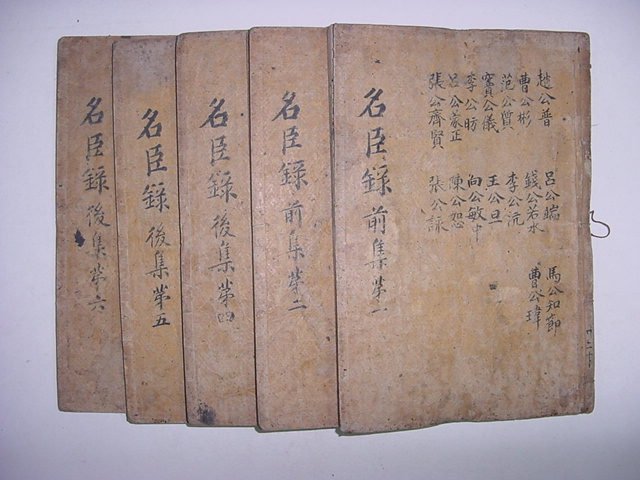 趙公普 呂公端 馬公知節
曹公彬 錢公若水 曹公瑋
范公質 李公沆
竇公儀 王公旦
李公昉 向公敏中
呂公蒙正 陳公恕
張公齊賢 張公詠
名臣錄 前集第一
名臣錄 前集第二
名臣錄 後集第四
名臣錄 後集第五
名臣錄 後集第六